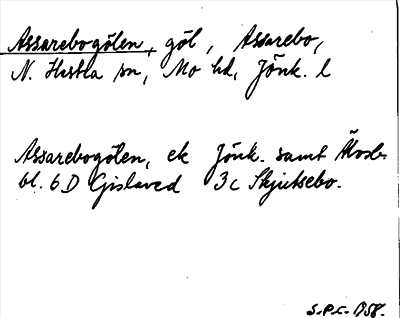 Assarebogölen, göl, Assarebo,
N. Hestra sn, Mo hd, Jönk. l
Assarebogölen, ek Jönk. samt Älvsb.
bl. 6D Gislaved 3c Skjutsebo.
S.P.C. 1958.